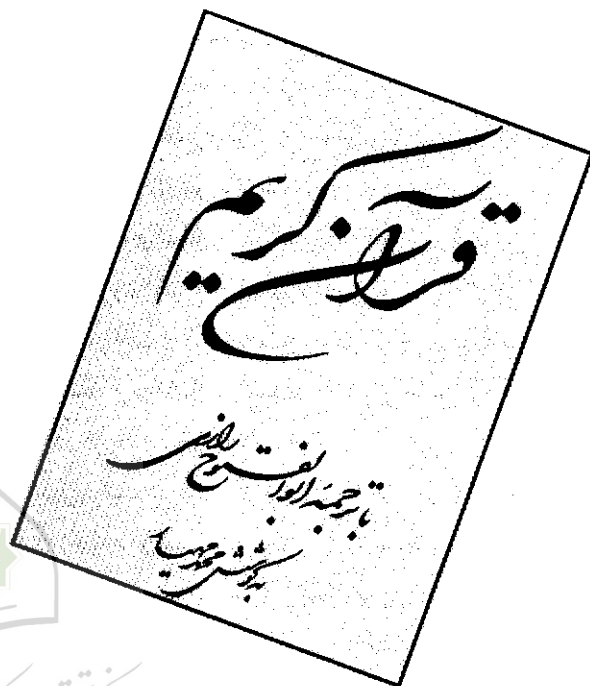 قرآن کریم
با ترجمه ابوالفتوح رازی
به کوشش محمد مهیار